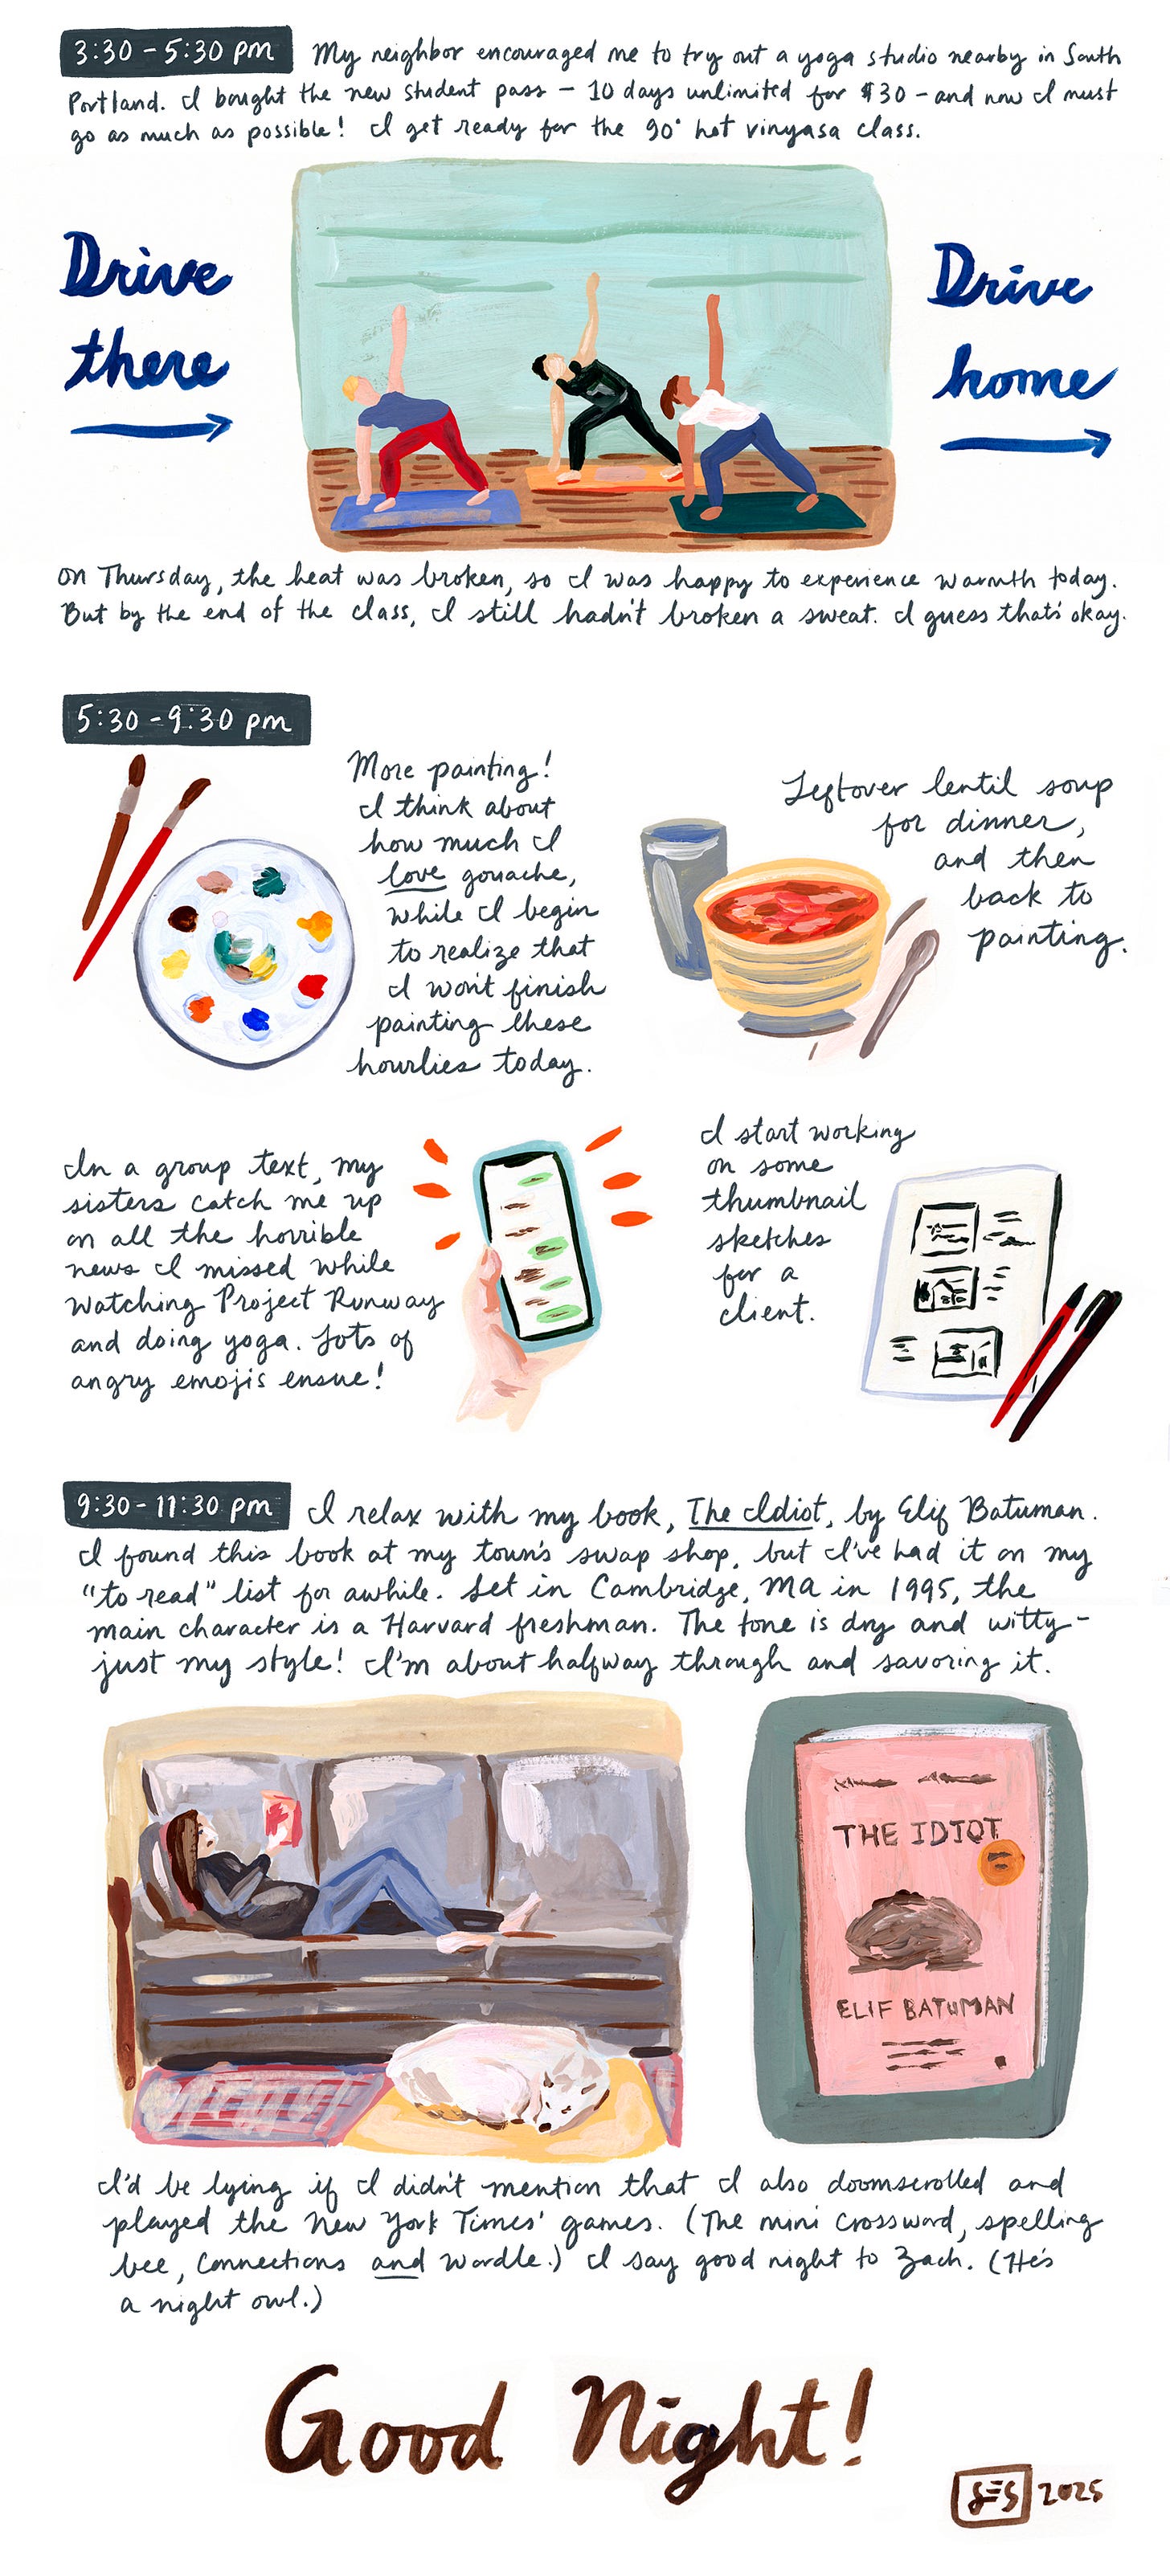 3:30 - 5:30 pm My neighbor encouraged me to try out a yoga studio nearby in South
Portland. I bought the new student pass - 10 days unlimited for $30 - and now I must
go as much as possible! I get ready for the 90° hot vinyasa class.
Drive
there
Drive
home
On Thursday, the heat was broken, so I was happy to experience warmth today.
But by the end of the class, I still hadn't broken a sweat. I guess that's okay.
5:30 - 9:30 pm
More painting!
I think about
how much I
love gouache,
while I begin
to realize that
I won't finish
painting these
hourlies today.
Leftover lentil soup
for dinner,
and then
back to
painting.
In a group text, my
sisters catch me up
on all the horrible
news I missed while
watching Project Runway
and doing yoga. Lots of
angry emojis ensue!
I start working
on some
thumbnail
sketches
for a
client.
9:30 - 11:30 pm I relax with my book, The Idiot, by Elif Batuman.
I found this book at my town's swap shop, but I've had it on my
"to read" list for awhile. Set in Cambridge, MA in 1995, the
main character is a Harvard freshman. The tone is dry and witty -
just my style! I'm about halfway through and savoring it.
THE IDIOT
ELIF BATUMAN
I'd be lying if I didn't mention that I also doomscrolled and
played the New York Times' games. (The mini crossword, spelling
bee, Connections and Wordle.) I say good night to Zach. (He's
a night owl.)
Good Night!
SES 2025